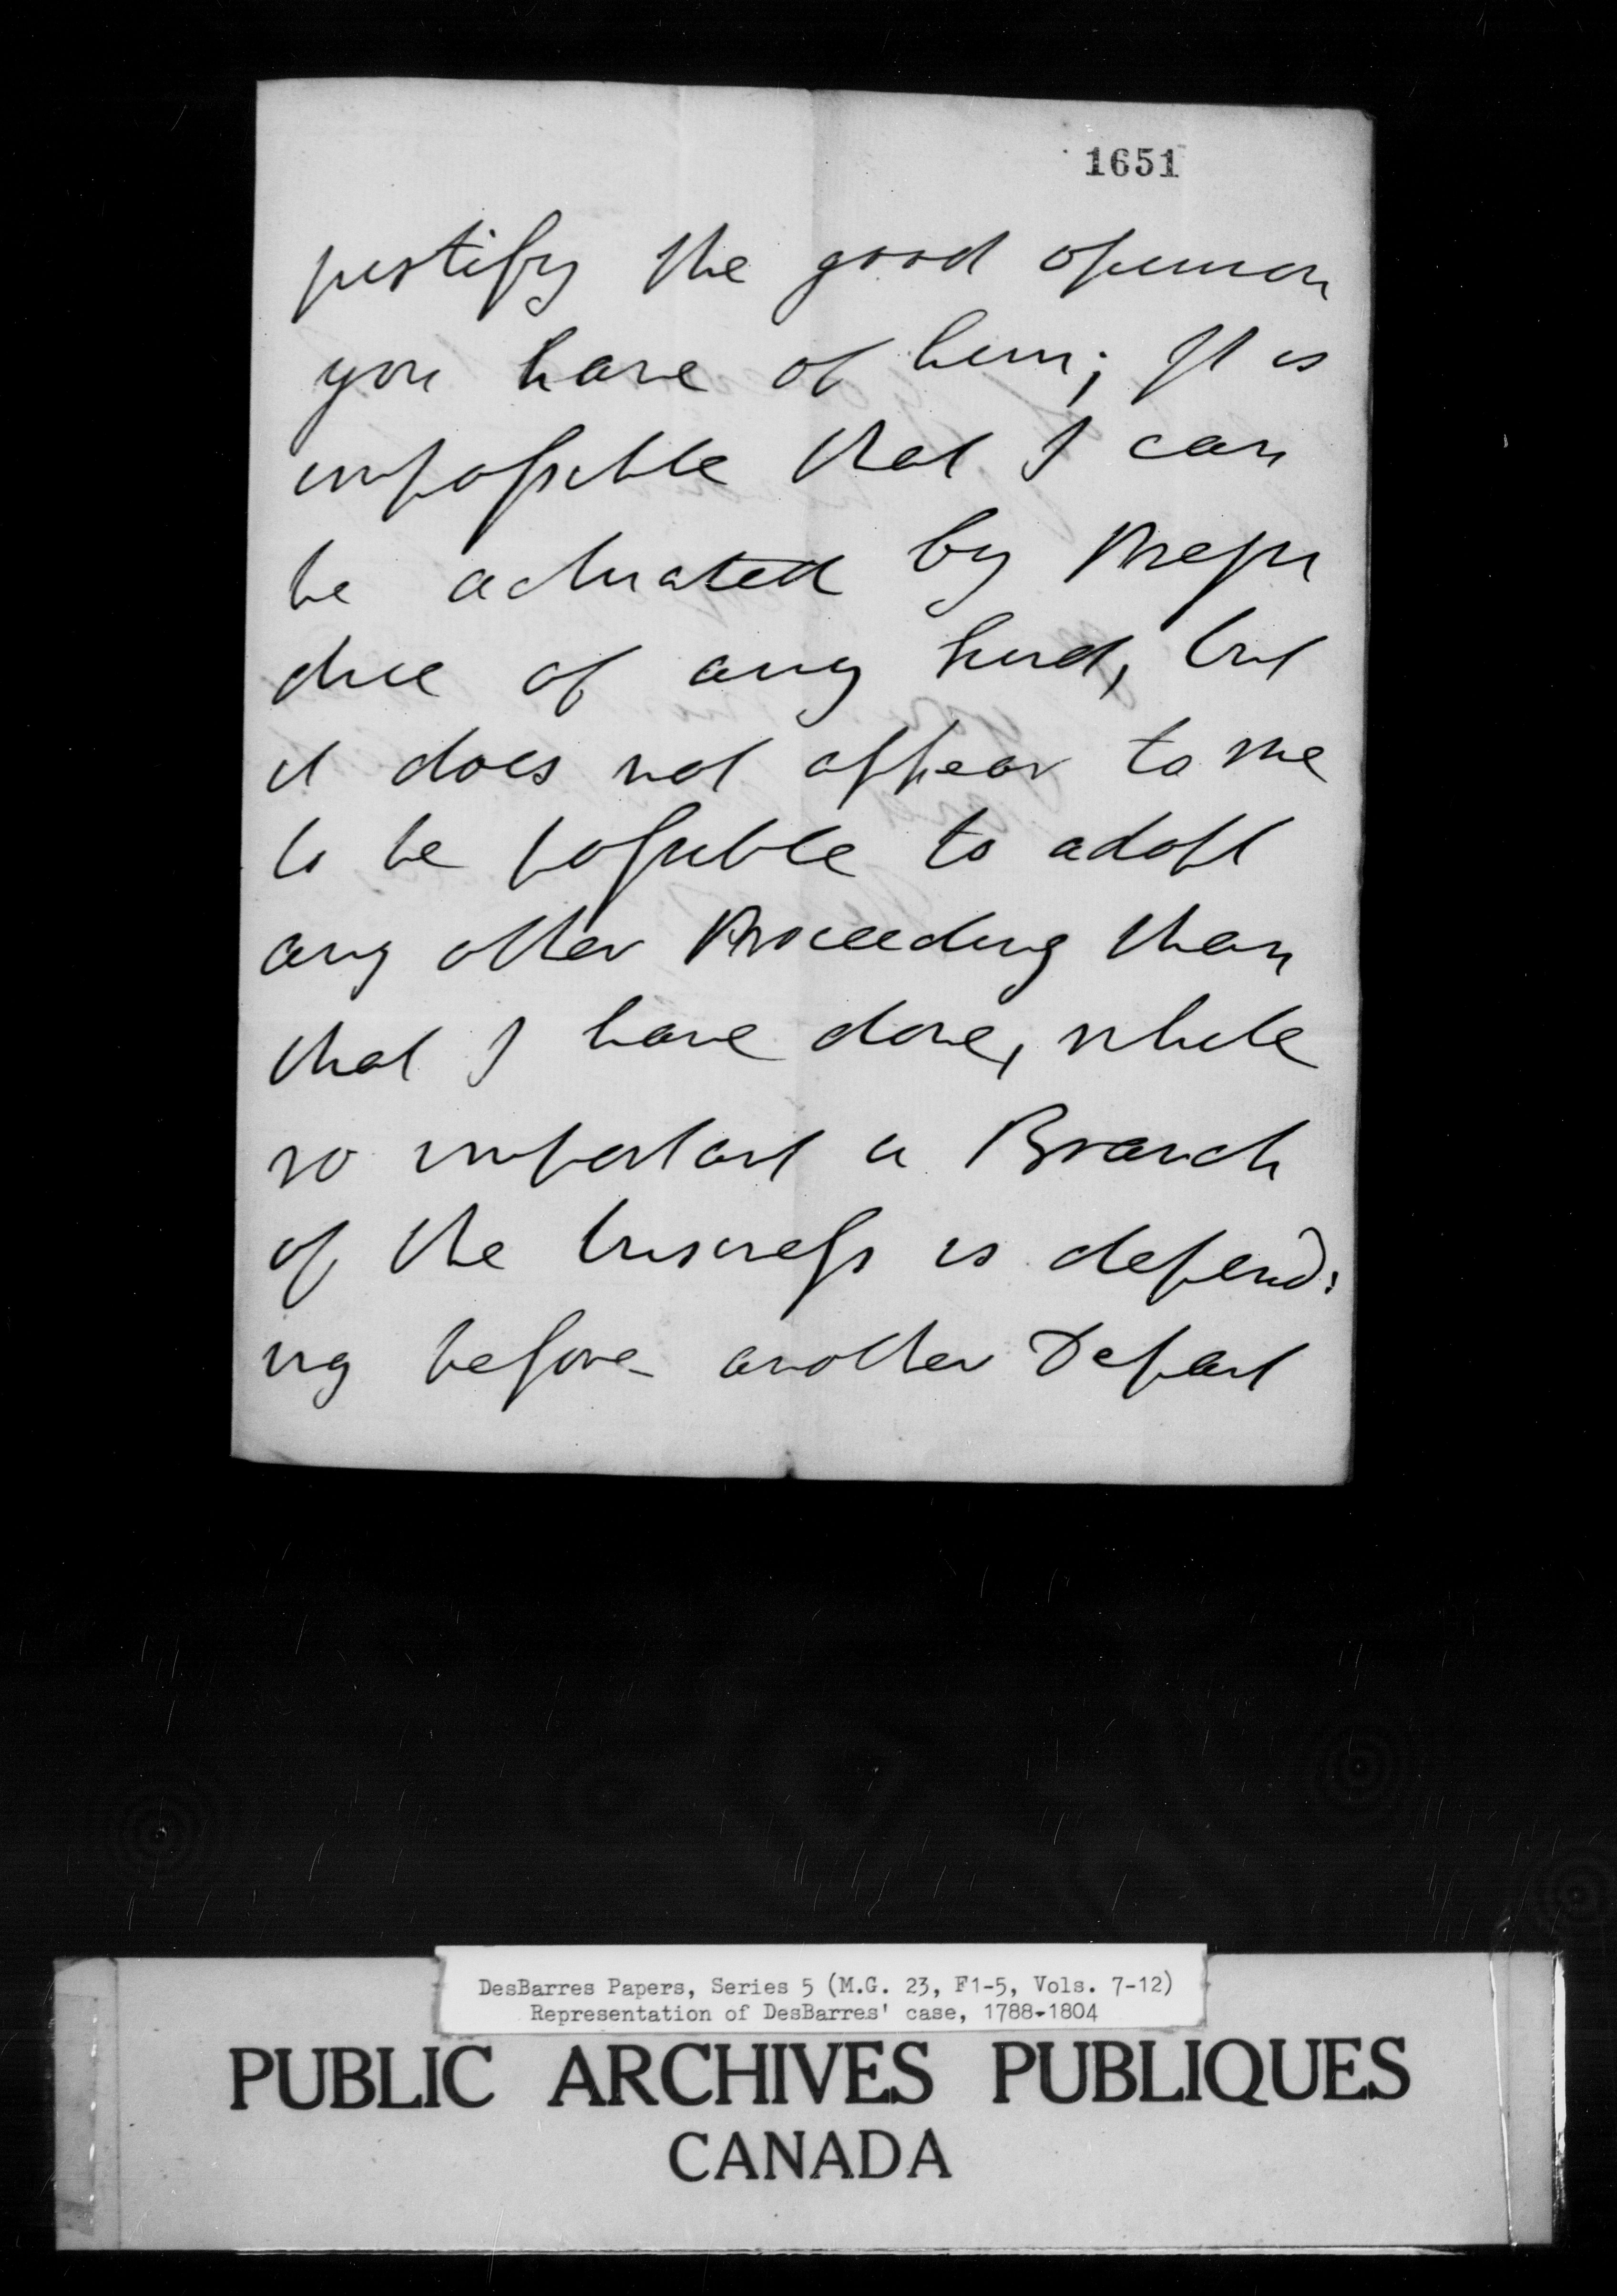 1651
justify the good opinion
you have of him; It is
impossible that I can
be actuated by Preju
dice of any kind, but
it does not appear to me
to be possible to adopt
any other Proceeding than
that I have done, while
so important a Branch
of the business is depend:
ing before another Depart
DesBarres Papers, Series 5 (M.G. 23, F1-5, Vols. 7-12)
Representation of DesBarres' case, 1788-1804
PUBLIC ARCHIVES PUBLIQUES
CANADA